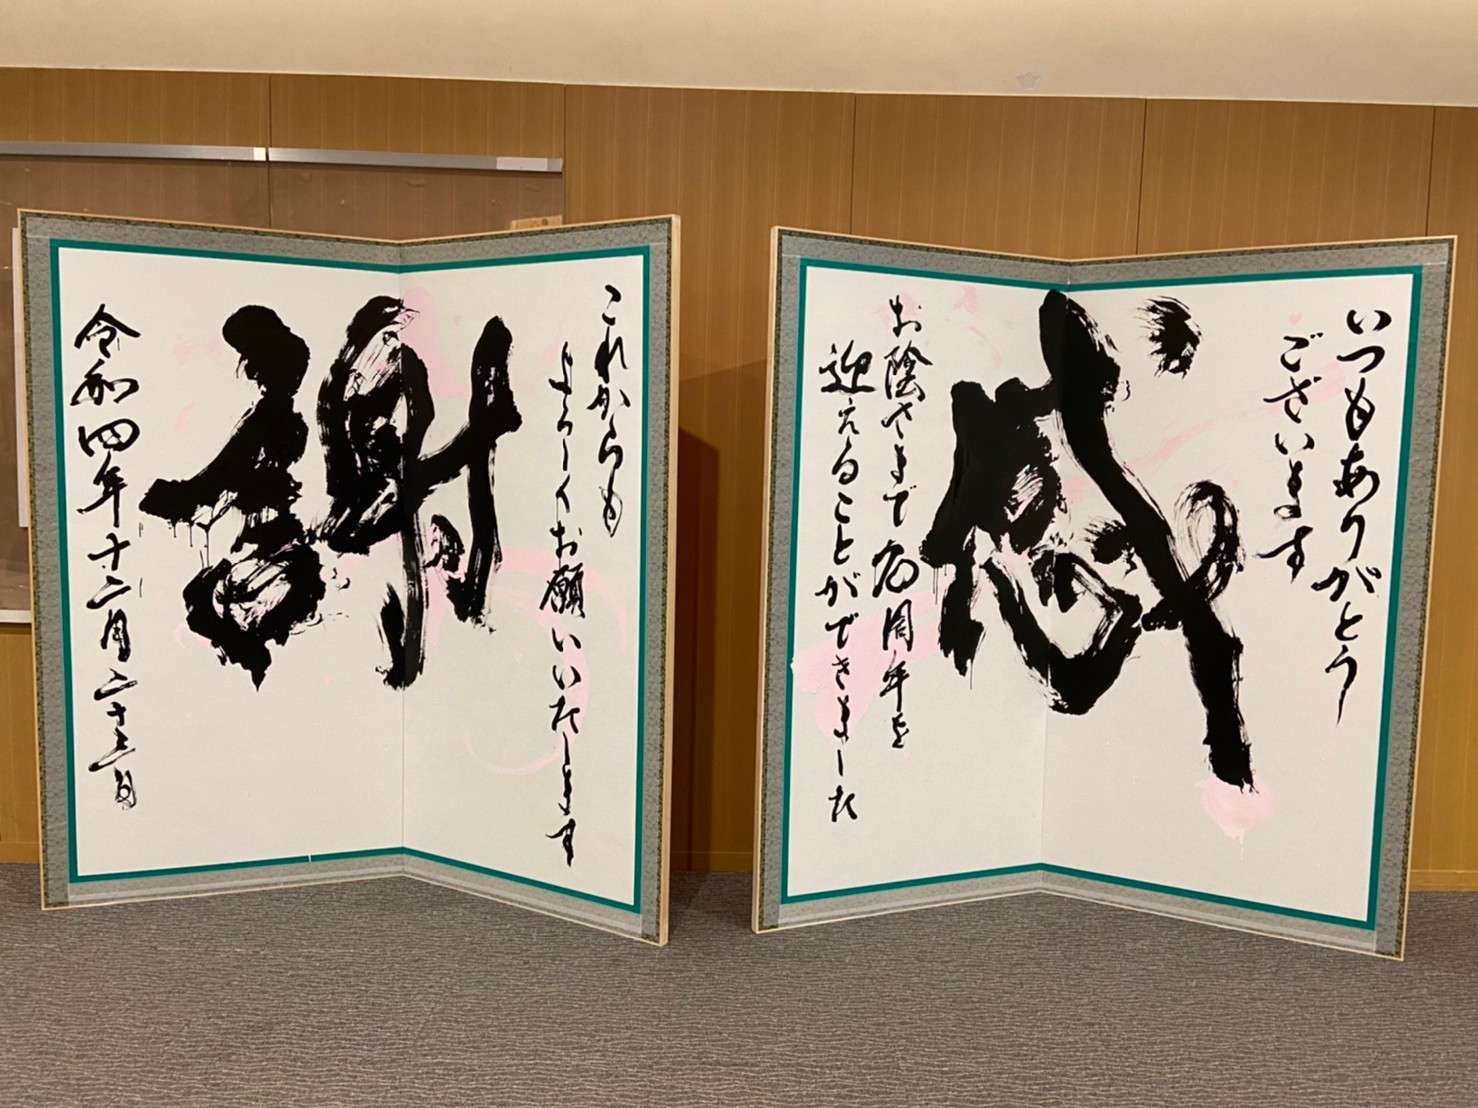 いつもありがとう
ございます
感
お陰さまで 周年を
迎えることができました
これからも
よろしくお願いいたします
謝
令和四年十二月二十三日